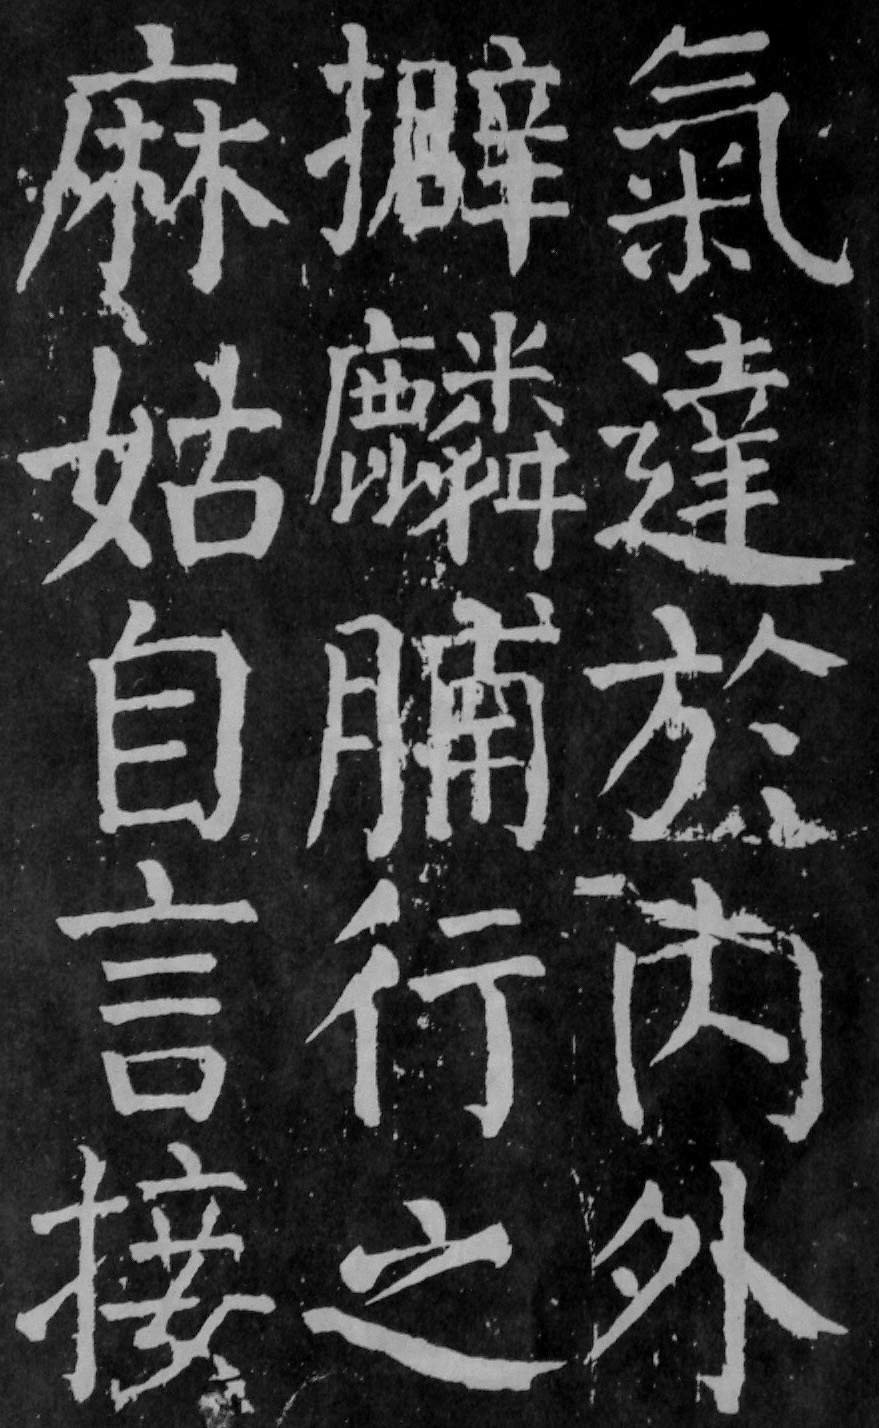 氣達於内外
擗麟脯行之
麻姑自言接